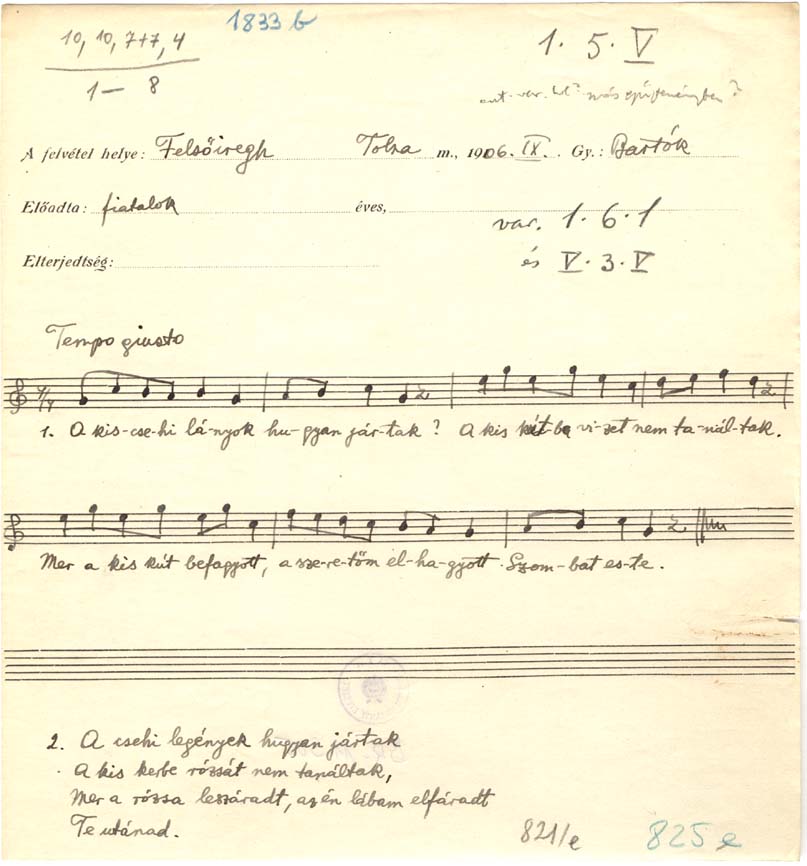 1833 b
10, 10, 7+7, 4
1 — 8
1. 5. V
más gyűjteményben?
A felvétel helye: Felsőiregh Tolna m., 1906. IX. Gy.: Bartók
Előadta: fiatalok éves,
var. 1. 6. 1
Elterjedtség:
és V. 3. V
Tempo giusto
1. A kis-cse-hi lá-nyok hu-gyan jár-tak? A kis kút-ba vi-zet nem ta-nál-tak.
Mer a kis kút befagyott, a sze-re-tőm el-ha-gyott. Szom-bat es-te.
2. A csehi legények hugyan jártak
A kis kerbe rózsát nem tanáltak,
Mer a rózsa leszáradt, az én lábam elfáradt
Te utánad.
821/e
825 e